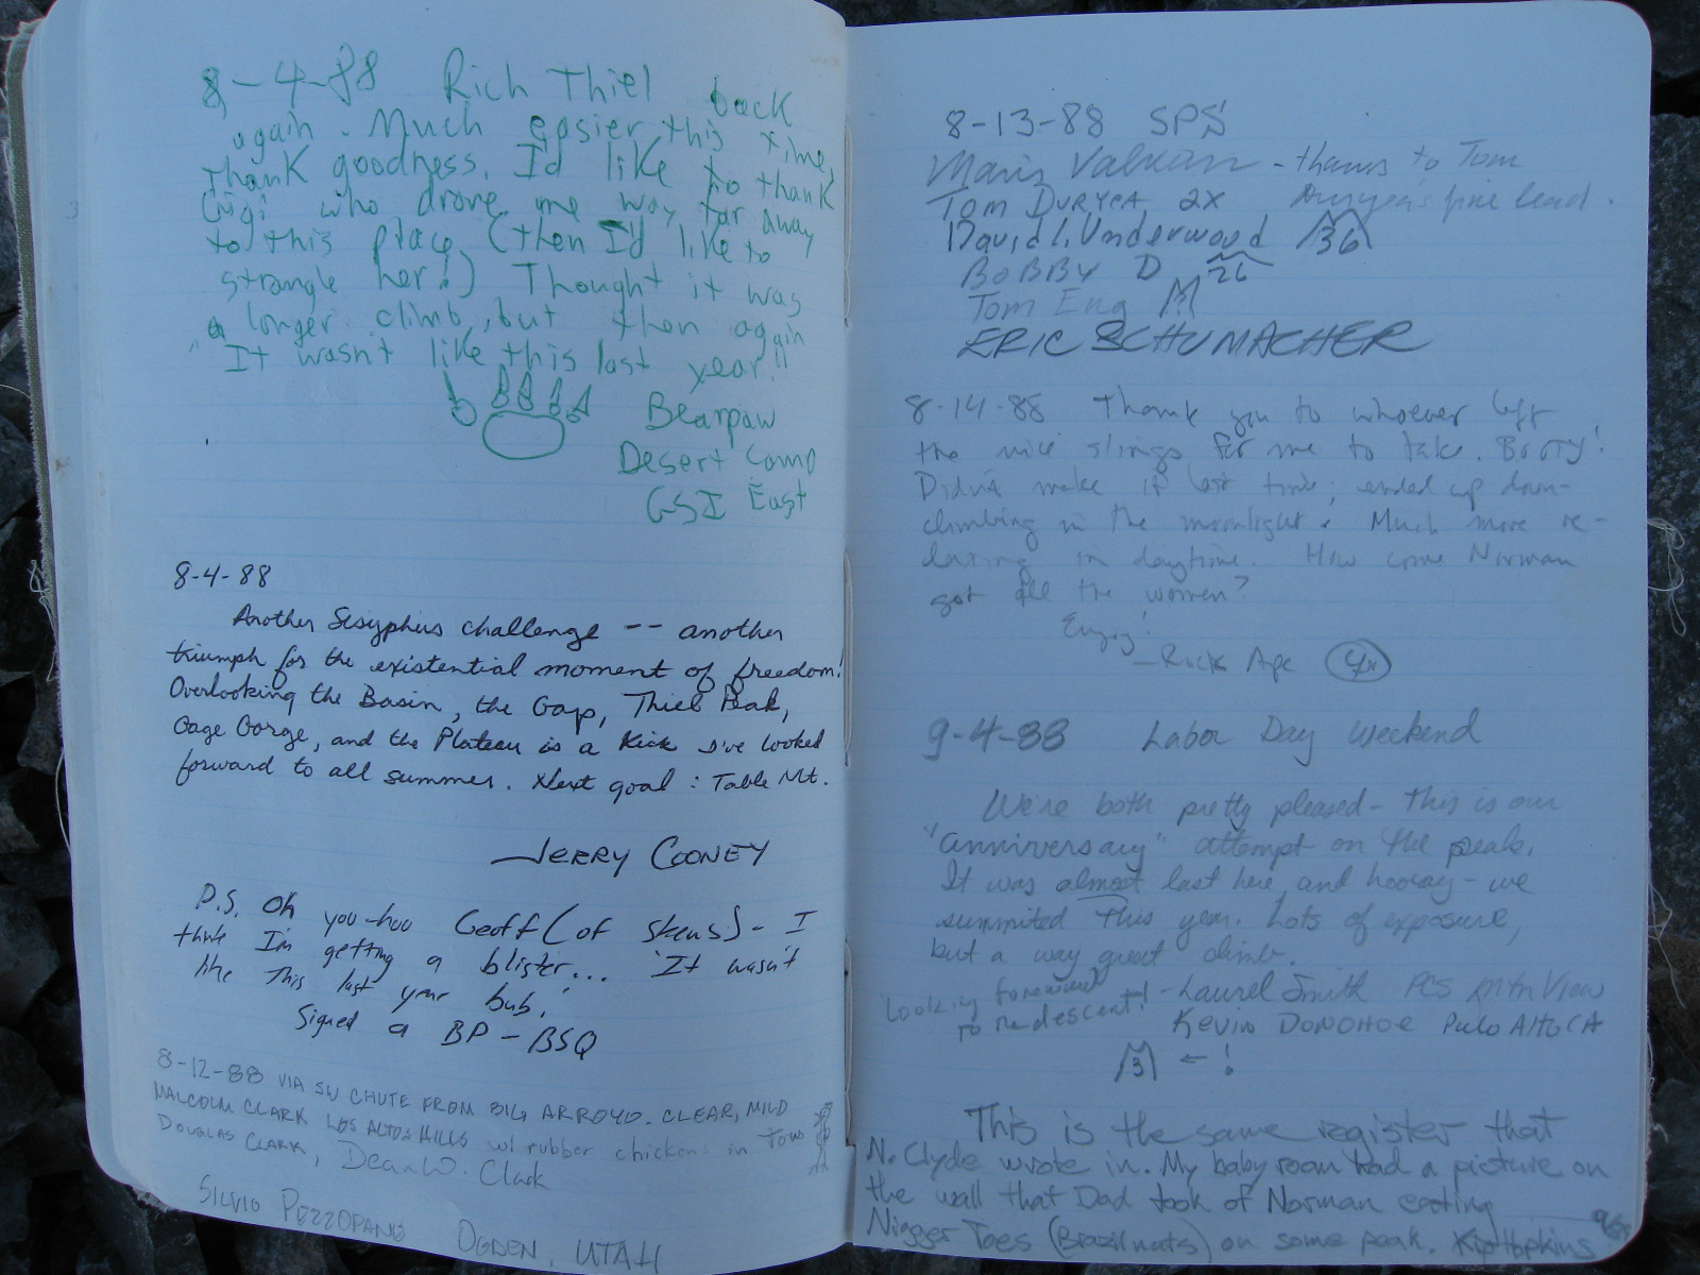 8-4-88 Rich Thiel back
again. Much easier this time,
thank goodness. I'd like to thank
Gigi who drove me way far away
to this place (then I'd like to
strangle her!) Thought it was
a longer climb, but then again
"It wasn't like this last year!"
Bearpaw
Desert Camp
GSI East
8-4-88
Another Sisyphus challenge -- another
triumph for the existential moment of freedom!
Overlooking the Basin, the Gap, Thiel Peak,
Gage Gorge, and the Plateau is a kick I've looked
forward to all summer. Next goal: Table Mt.
Jerry Cooney
P.S. Oh you-hoo Geoff (of Skeus) - I
think I'm getting a blister... 'It wasn't
like this last year bub.'
Signed a BP-BSQ
8-12-88 VIA SW CHUTE FROM BIG ARROYO. CLEAR, MILD
MALCOLM CLARK LOS ALTOS HILLS w/ rubber chicken in tow
DOUGLAS CLARK, Dean W. Clark
SILVIO PEZZOPANO OGDEN, UTAH
8-13-88 SPS
Maris Valkass - thanks to Tom
Tom DURYEA 2X Duryea's fine lead.
David L. Underwood 36
BOBBY D 26
Tom Eng
ERIC SCHUMACHER
8-14-88 Thank you to whoever left
the nice slings for me to take. BOOTY!
Didn't make it last time; ended up down-
climbing in the moonlight. Much more re-
laxing in daytime. How come Norman
got all the women?
Enjoy!
- Rick Ape 4x
9-4-88 Labor Day Weekend
We're both pretty pleased - this is our
"anniversary" attempt on the peak.
It was almost last here, and hooray - we
summited this year. Lots of exposure,
but a way great climb.
Looking foreward - Laurel Smith PCS Mtn View
to the descent! Kevin DONOHOE Palo Alto CA
3 ← !
This is the same register that
N. Clyde wrote in. My baby room had a picture on
the wall that Dad took of Norman eating
Nigger Toes (Brazil nuts) on some peak. Kip Hopkins